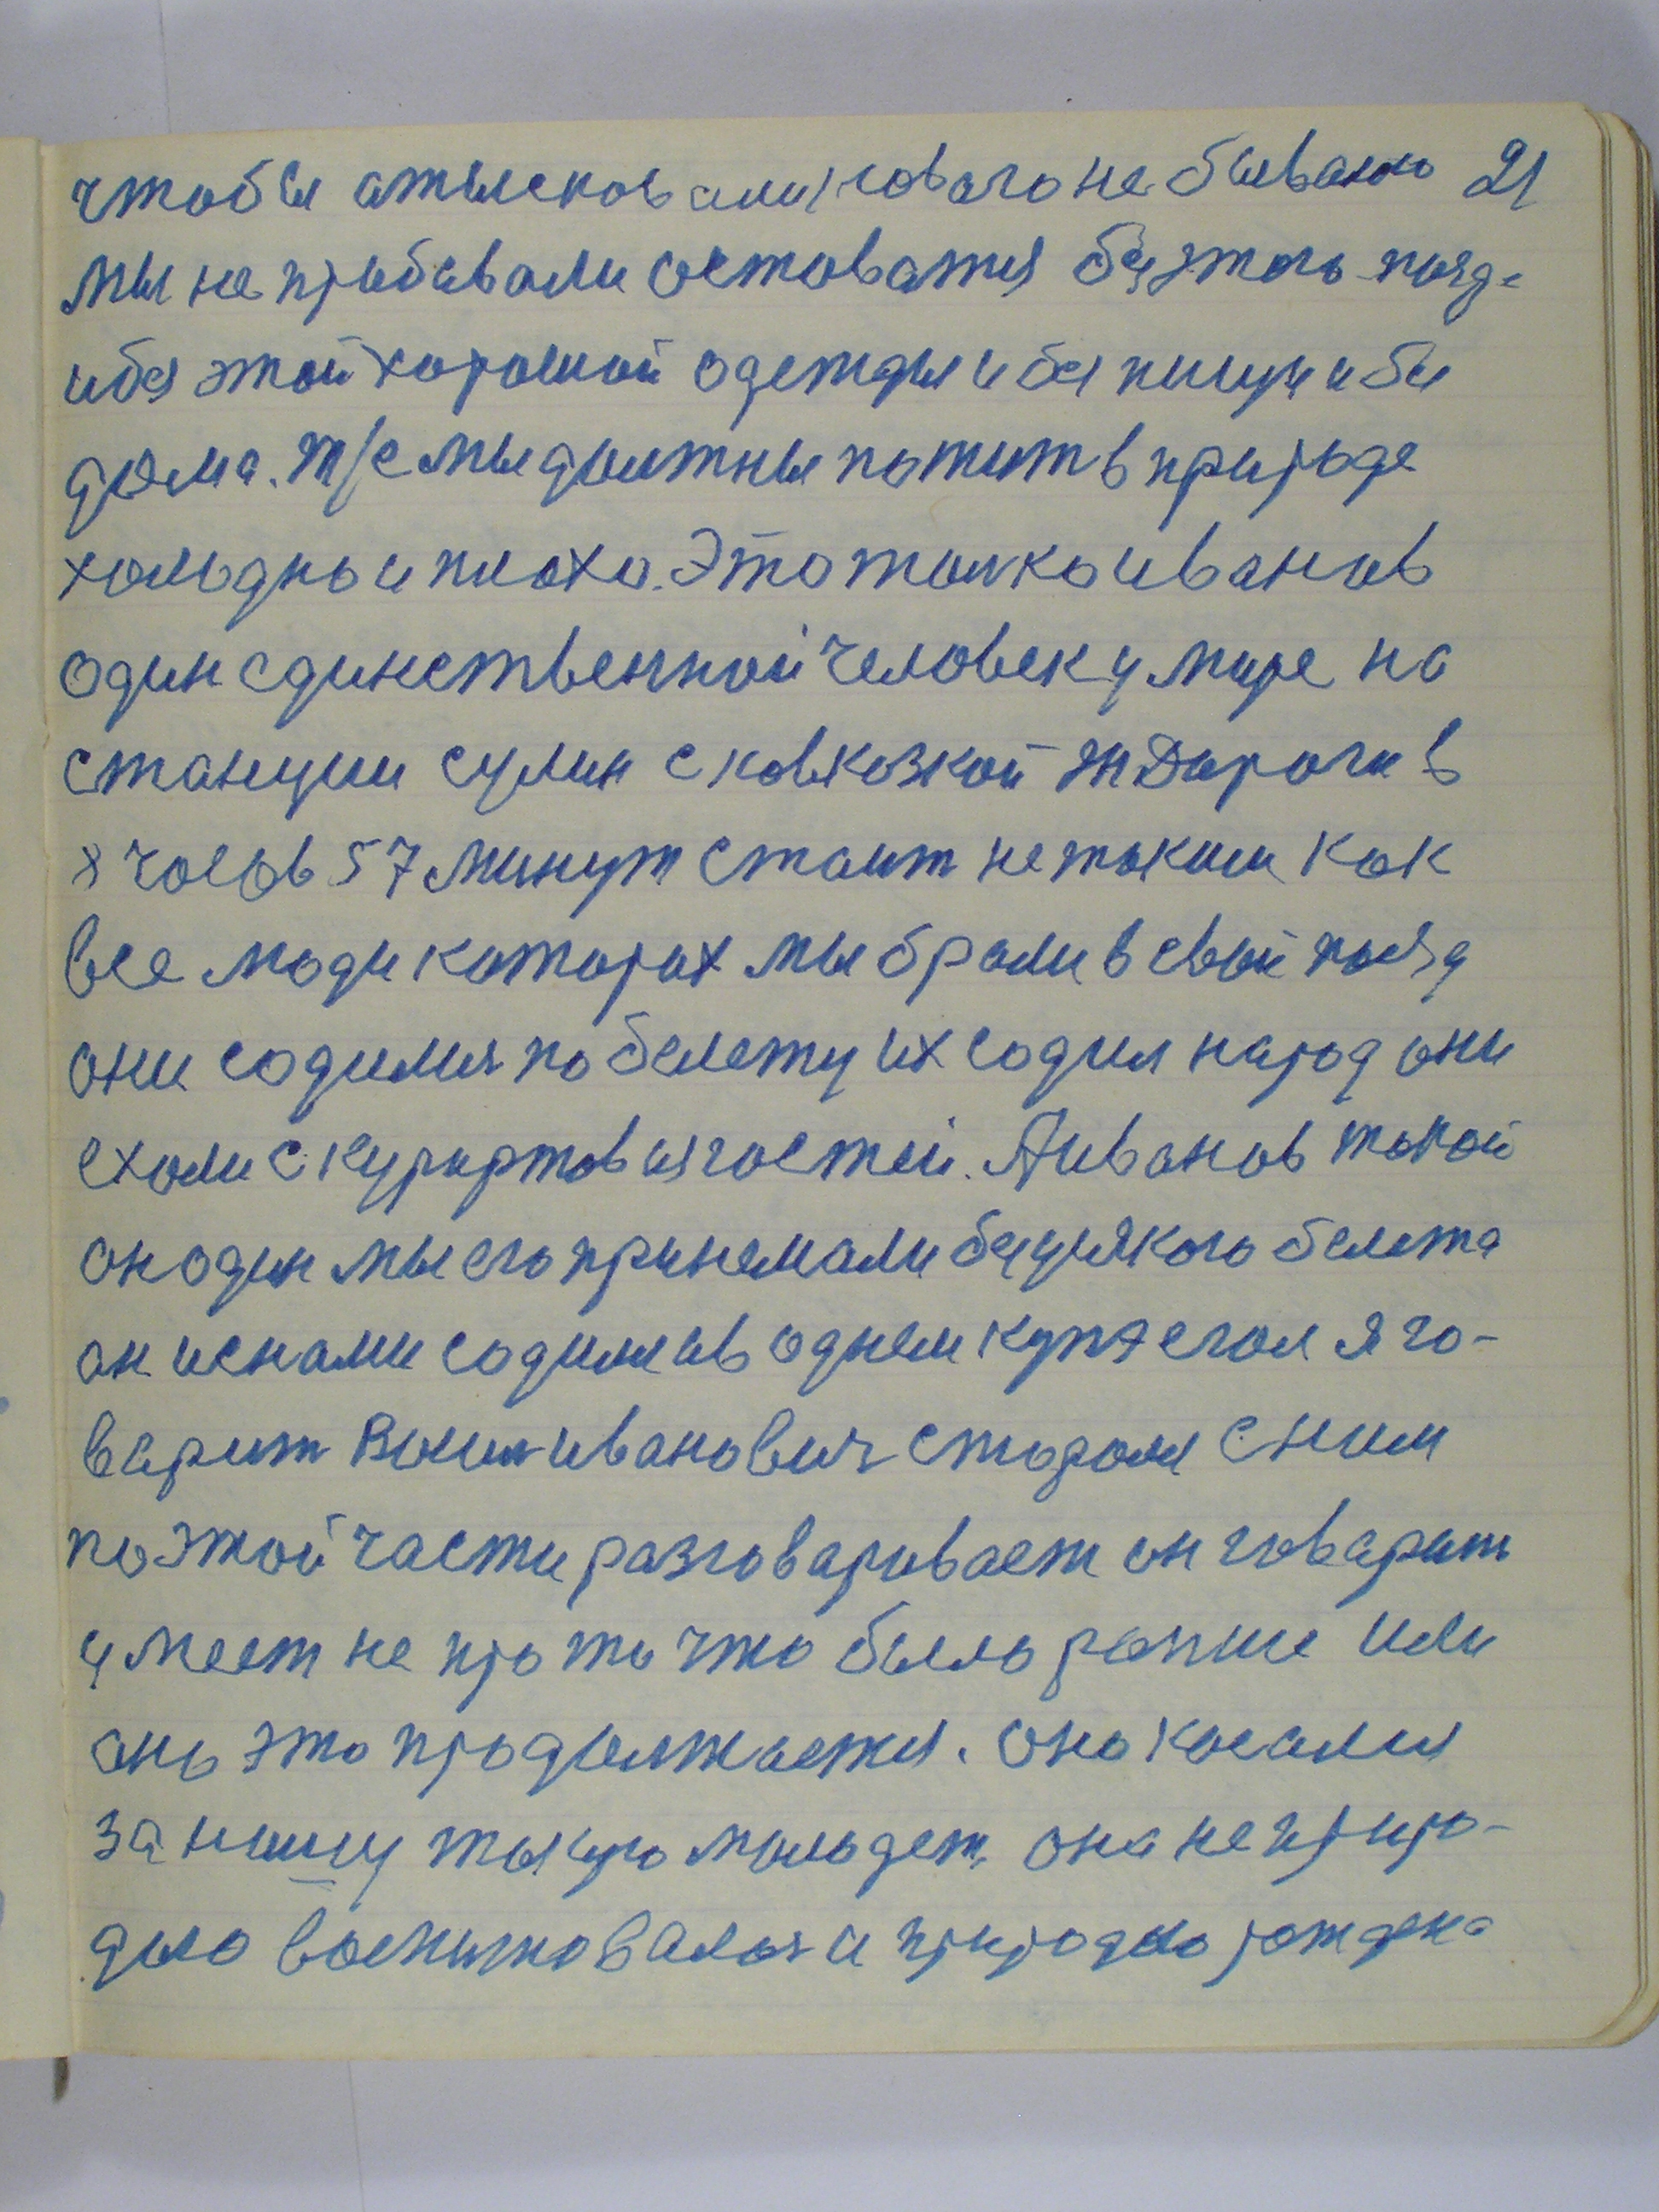 чтобы отысковали) товаго не бывало 21
мы не пробывали остоватся без этого поезд-
и без этой хорошой одежды и без пищи и без
дома. т/е мы должны пожит в природе
холодно и плохо. Это толко иванов
один единственной человек у мире на
станции сулин с ковкозкой ж дороги в
8 часов 57 минут стоит не таким как
все люди которах мы брали в свой поезд
они содился по белету их содил народ они
ехоли с курортов из гостей. А иванов токой
он один мы его принемали без узякого белета
он и с нами содился в однем купэ егол я го-
варит иванович стодоля с ним
по этой части разговаривает он говарит
умеет не про то что было ранше или
оно это продолжается. оно косался
за нашу токую молодеж. она не приро-
дно воспитовалося и природно рождена